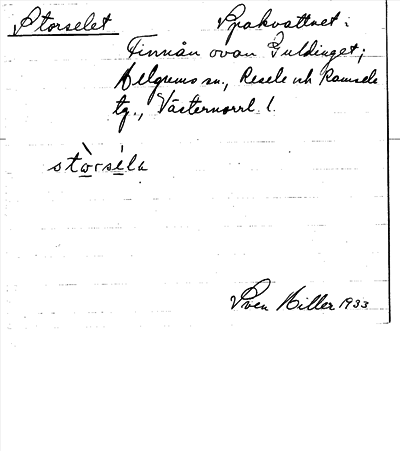 Storselet Spakvattnet i
Finnån ovan Guldinget;
Helgums sn., Resele och Ramsele
tg., Västernorrl. l.
stòrséla
Sven Hiller 1933